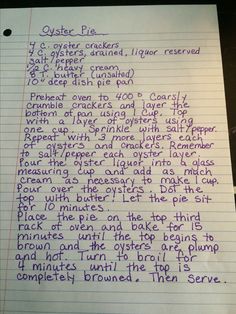 Oyster Pie
4 C. oyster crackers
4 C. oysters, drained, liquor reserved
salt/pepper
1/2 C. heavy cream
8 T. butter (unsalted)
10" deep dish pie pan
Preheat oven to 400°. Coarsly
crumble crackers and layer the
bottom of pan using 1 cup. Top
with a layer of oysters using
one cup. Sprinkle with salt/pepper.
Repeat with 3 more layers each
of oysters and crackers. Remember
to salt/pepper each oyster layer.
Pour the oyster liquor into a glass
measuring cup and add as much
cream as necessary to make 1 cup.
Pour over the oysters. Dot the
top with butter! Let the pie sit
for 10 minutes.
Place the pie on the top third
rack of oven and bake for 15
minutes until the top begins to
brown and the oysters are plump
and hot. Turn to broil for
4 minutes until the top is
completely browned. Then serve.